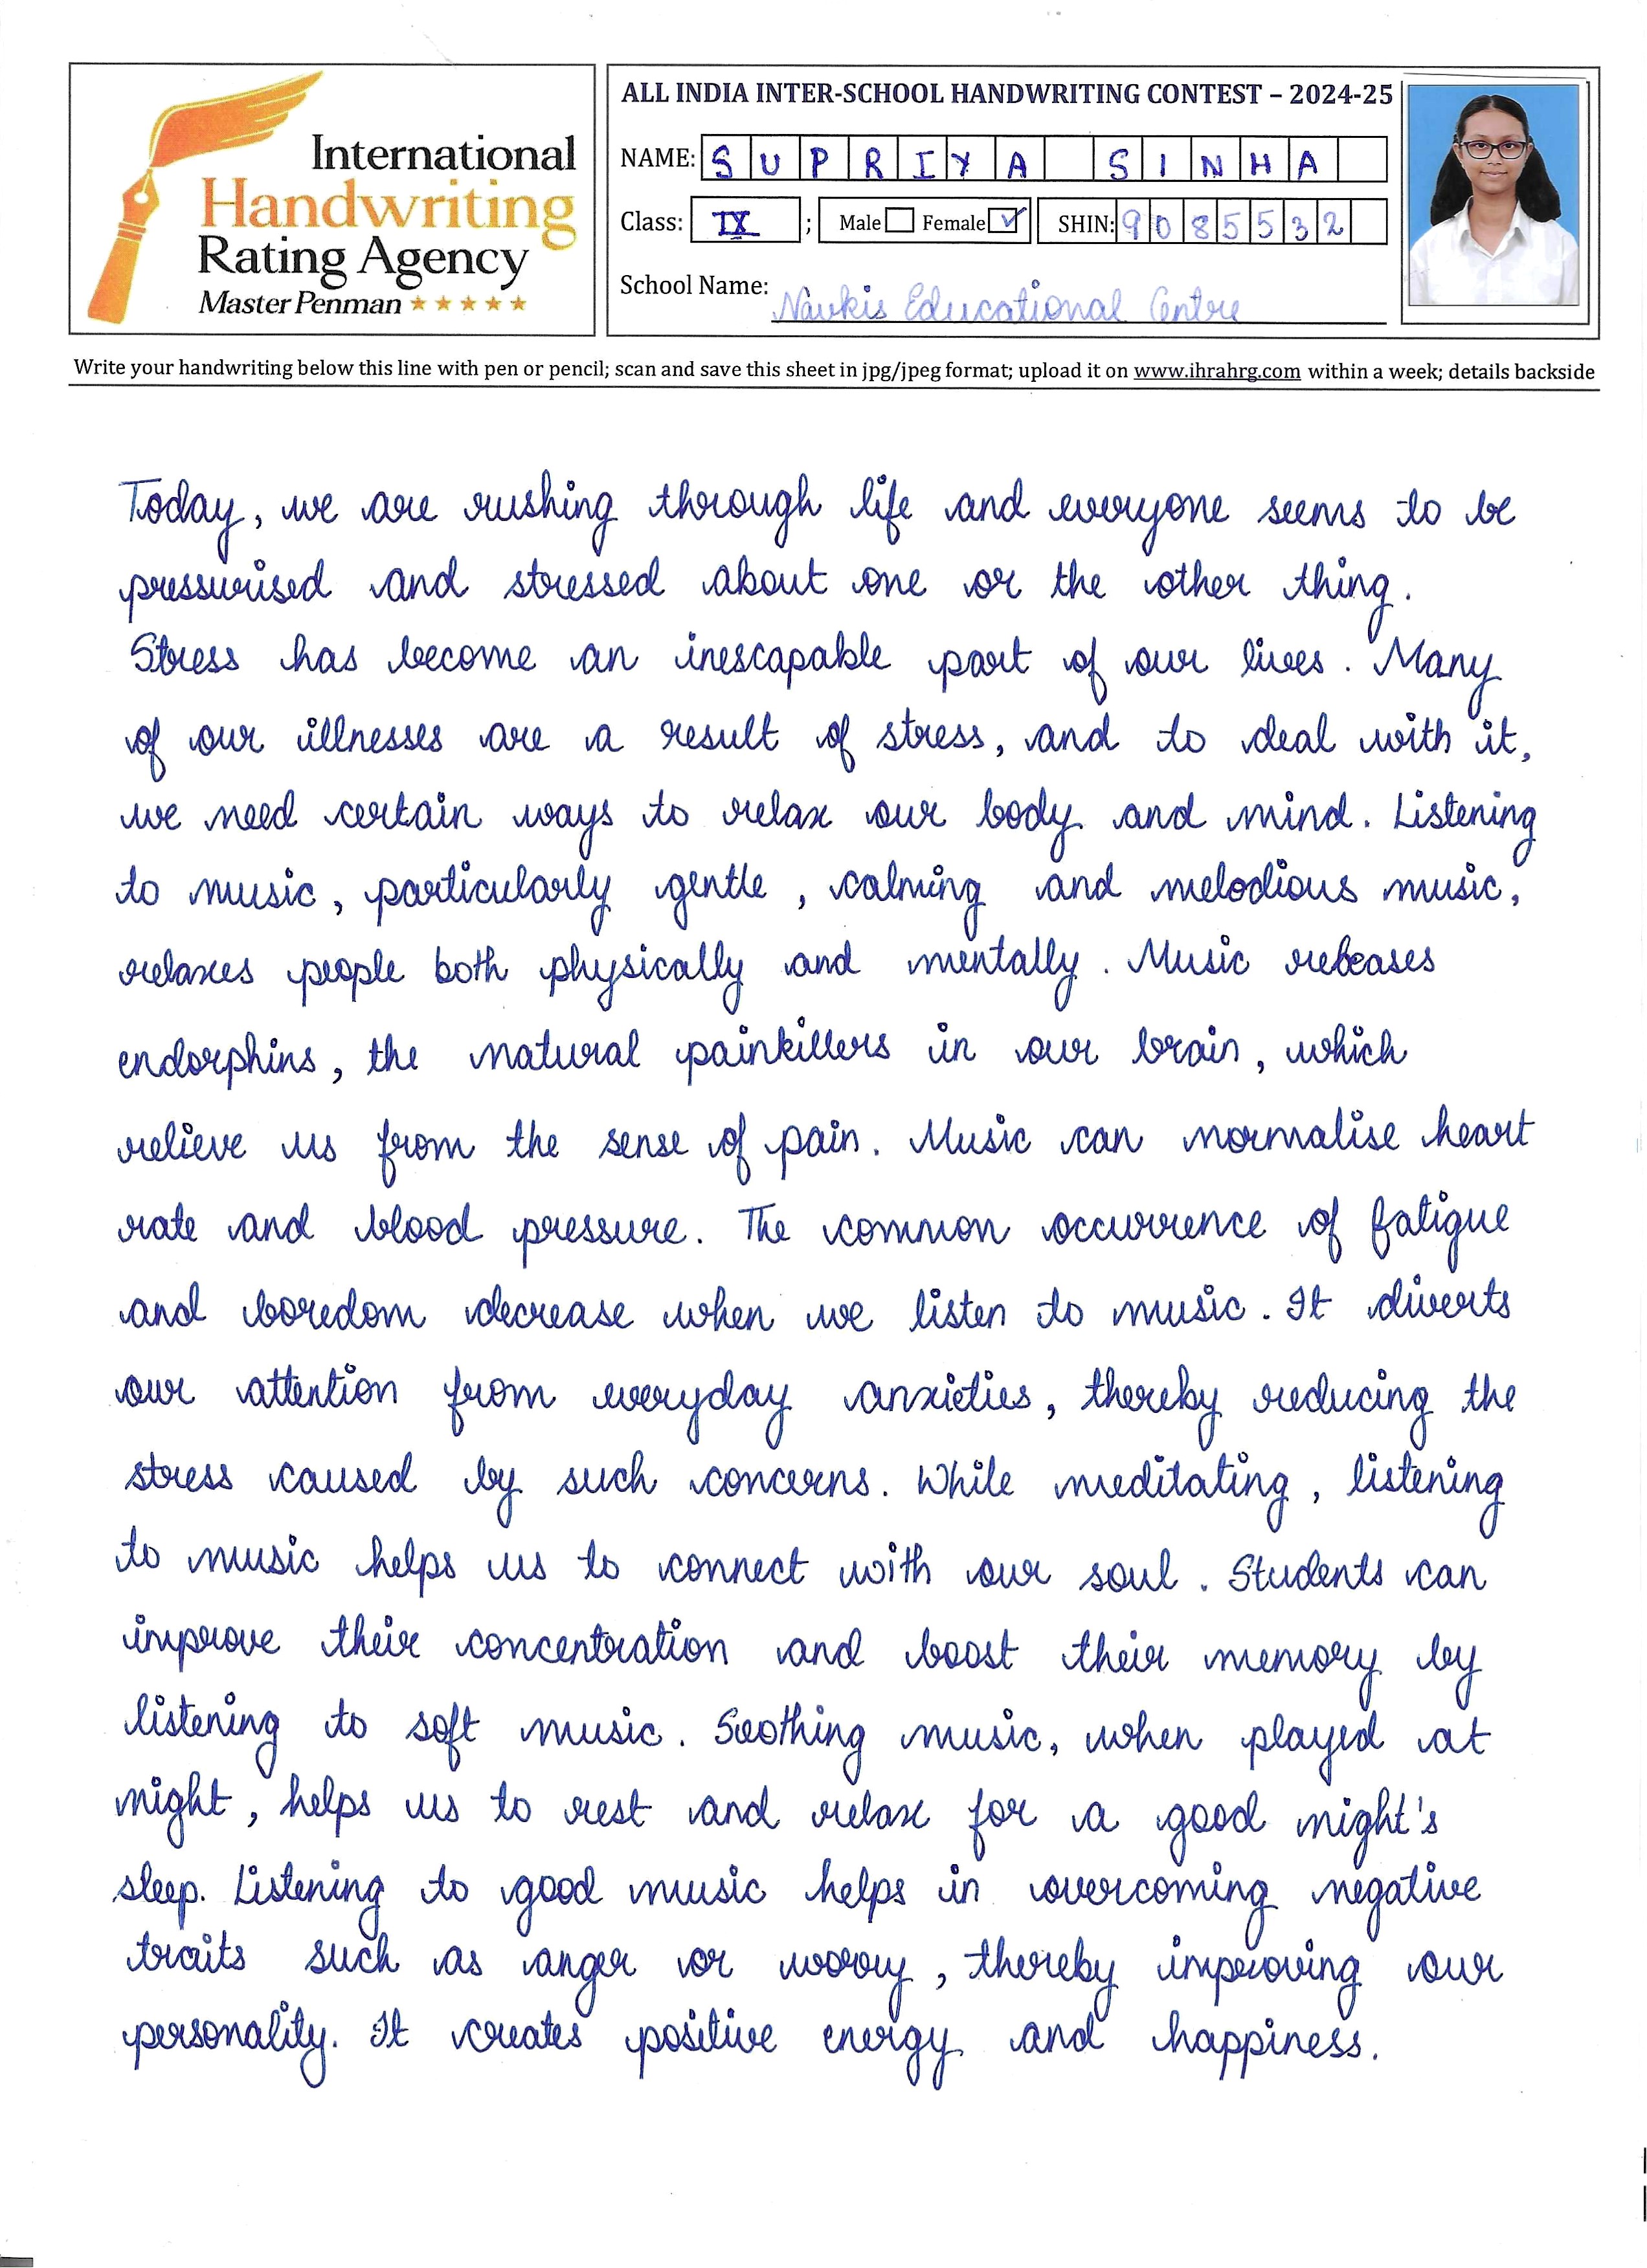 International
Handwriting
Rating Agency
Master Penman
ALL INDIA INTER-SCHOOL HANDWRITING CONTEST – 2024-25
NAME: SUPRIYA SINHA
Class: IX ; Male Female SHIN: 9085532
School Name: Navkis Educational Centre
Write your handwriting below this line with pen or pencil; scan and save this sheet in jpg/jpeg format; upload it on www.ihrahrg.com within a week; details backside
Today, we are rushing through life and everyone seems to be
pressurised and stressed about one or the other thing.
Stress has become an inescapable part of our lives. Many
of our illnesses are a result of stress, and to deal with it,
we need certain ways to relax our body and mind. Listening
to music, particularly gentle, calming and melodious music,
relaxes people both physically and mentally. Music releases
endorphins, the natural painkillers in our brain, which
relieve us from the sense of pain. Music can normalise heart
rate and blood pressure. The common occurrence of fatigue
and boredom decrease when we listen to music. It diverts
our attention from everyday anxieties, thereby reducing the
stress caused by such concerns. While meditating, listening
to music helps us to connect with our soul. Students can
improve their concentration and boost their memory by
listening to soft music. Soothing music, when played at
night, helps us to rest and relax for a good night's
sleep. Listening to good music helps in overcoming negative
traits such as anger or worry, thereby improving our
personality. It creates positive energy and happiness.